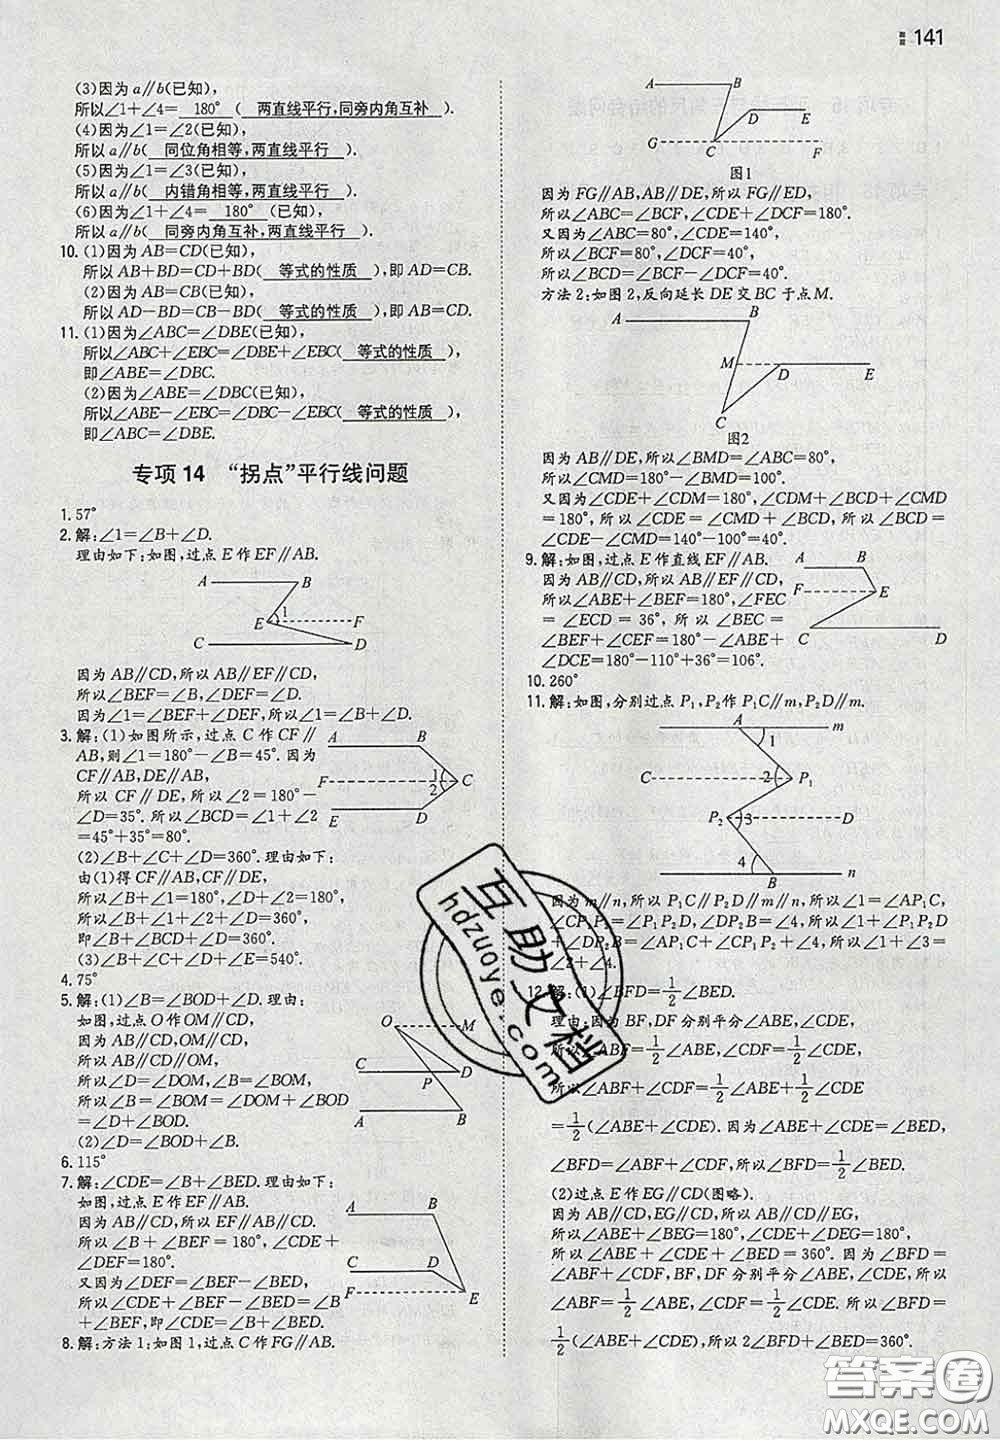 141
(3)因为a∥b(已知),
所以∠1+∠4= 180° ( 两直线平行,同旁内角互补 ).
(4)因为∠1=∠2(已知),
所以a∥b( 同位角相等,两直线平行 ).
(5)因为∠1=∠3(已知),
所以a∥b( 内错角相等,两直线平行 ).
(6)因为∠1+∠4= 180° (已知),
所以a∥b( 同旁内角互补,两直线平行 ).
10. (1)因为AB=CD(已知),
所以AB+BD=CD+BD( 等式的性质 ),即AD=CB.
(2)因为AB=CB(已知),
所以AD-BD=CB-BD( 等式的性质 ),即AB=CD.
11. (1)因为∠ABC=∠DBE(已知),
所以∠ABC+∠EBC=∠DBE+∠EBC( 等式的性质 ),
即∠ABE=∠DBC.
(2)因为∠ABE=∠DBC(已知),
所以∠ABE-∠EBC=∠DBC-∠EBC( 等式的性质 ),
即∠ABC=∠DBE.
专项14 “拐点”平行线问题
1. 57°
2. 解:∠1=∠B+∠D.
理由如下:如图,过点E作EF∥AB.
A B
E 1 F
C D
因为AB∥CD,所以AB∥EF∥CD,
所以∠BEF=∠B,∠DEF=∠D.
因为∠1=∠BEF+∠DEF,所以∠1=∠B+∠D.
3. 解:(1)如图所示,过点C作CF∥
AB,则∠1=180°-∠B=45°. 因为
CF∥AB,DE∥AB,
所以CF∥DE,所以∠2=180°-
∠D=35°. 所以∠BCD=∠1+∠2
=45°+35°=80°.
A B
F 1 2 C
E D
(2)∠B+∠C+∠D=360°. 理由如下:
由(1)得CF∥AB,CF∥DE,
所以∠B+∠1=180°,∠2+∠D=180°,
所以∠B+∠1+∠2+∠D=360°,
即∠B+∠BCD+∠D=360°.
(3)∠B+∠C+∠D+∠E=540°.
4. 75°
5. 解:(1)∠B=∠BOD+∠D. 理由:
如图,过点O作OM∥CD,
因为AB∥CD,OM∥CD,
所以AB∥CD∥OM,
所以∠D=∠DOM,∠B=∠BOM,
所以∠B=∠BOM=∠DOM+∠BOD
=∠D+∠BOD.
(2)∠D=∠BOD+∠B.
O M
C P D
A B
6. 115°
7. 解:∠CDE=∠B+∠BED. 理由:
如图,过点E作EF∥AB.
因为AB∥CD,所以EF∥AB∥CD.
所以∠B+∠BEF=180°,∠CDE+
∠DEF=180°.
又因为∠DEF=∠BEF-∠BED,
所以∠CDE+∠BEF-∠BED=∠B
+∠BEF,即∠CDE=∠B+∠BED.
A B
C D
F E
8. 解:方法1:如图1,过点C作FG∥AB.
A B
D E
G C F
图1
因为FG∥AB,AB∥DE,所以FG∥ED,
所以∠ABC=∠BCF,∠CDE+∠DCF=180°.
又因为∠ABC=80°,∠CDE=140°,
所以∠BCF=80°,∠DCF=40°,
所以∠BCD=∠BCF-∠DCF=40°.
方法2:如图2,反向延长DE交BC于点M.
A B
M D E
C
图2
因为AB∥DE,所以∠BMD=∠ABC=80°,
所以∠CMD=180°-∠BMD=100°.
又因为∠CDE+∠CDM=180°,∠BCD+∠CDM+∠CMD
=180°,所以∠CDE=∠CMD+∠BCD,所以∠BCD=
∠CDE-∠CMD=140°-100°=40°.
9. 解:如图,过点E作直线EF∥AB.
因为AB∥CD,所以AB∥EF∥CD,
所以∠ABE+∠BEF=180°,∠FEC
=∠ECD=36°,所以∠BEC=
∠BEF+∠CEF=180°-∠ABE+
∠DCE=180°-110°+36°=106°.
A B
F E
C D
10. 260°
11. 解:如图,分别过点P₁,P₂作P₁C∥m,P₂D∥m.
A 1 m
C 2 P₁
P₂ 3 D
4 B n
因为m∥n,所以P₁C∥P₂D∥m∥n,所以∠1=∠AP₁C,
∠CP₁P₂=∠P₁P₂D,∠DP₂B=∠4,所以∠1+∠P₁P₂D
+∠DP₂B=∠AP₁C+∠CP₁P₂+∠4,所以∠1+∠3=
∠2+∠4.
12. 解:(1)∠BFD=1/2∠BED.
理由:因为BF,DF分别平分∠ABE,∠CDE,
所以∠ABF=1/2∠ABE,∠CDF=1/2∠CDE,
所以∠ABF+∠CDF=1/2∠ABE+1/2∠CDE
=1/2(∠ABE+∠CDE). 因为∠ABE+∠CDE=∠BED,
∠BFD=∠ABF+∠CDF,所以∠BFD=1/2∠BED.
(2)过点E作EG∥CD(图略).
因为AB∥CD,EG∥CD,所以AB∥CD∥EG,
所以∠ABE+∠CDE+∠BED=360°. 因为∠BFD=
∠ABF+∠CDF,BF,DF分别平分∠ABE,∠CDE,所
以∠ABF=1/2∠ABE,∠CDF=1/2∠CDE,所以∠BFD=
1/2(∠ABE+∠CDE),所以2∠BFD+∠BED=360°.
互助文档
hdzuoye.com
答案圈
MXQE.COM